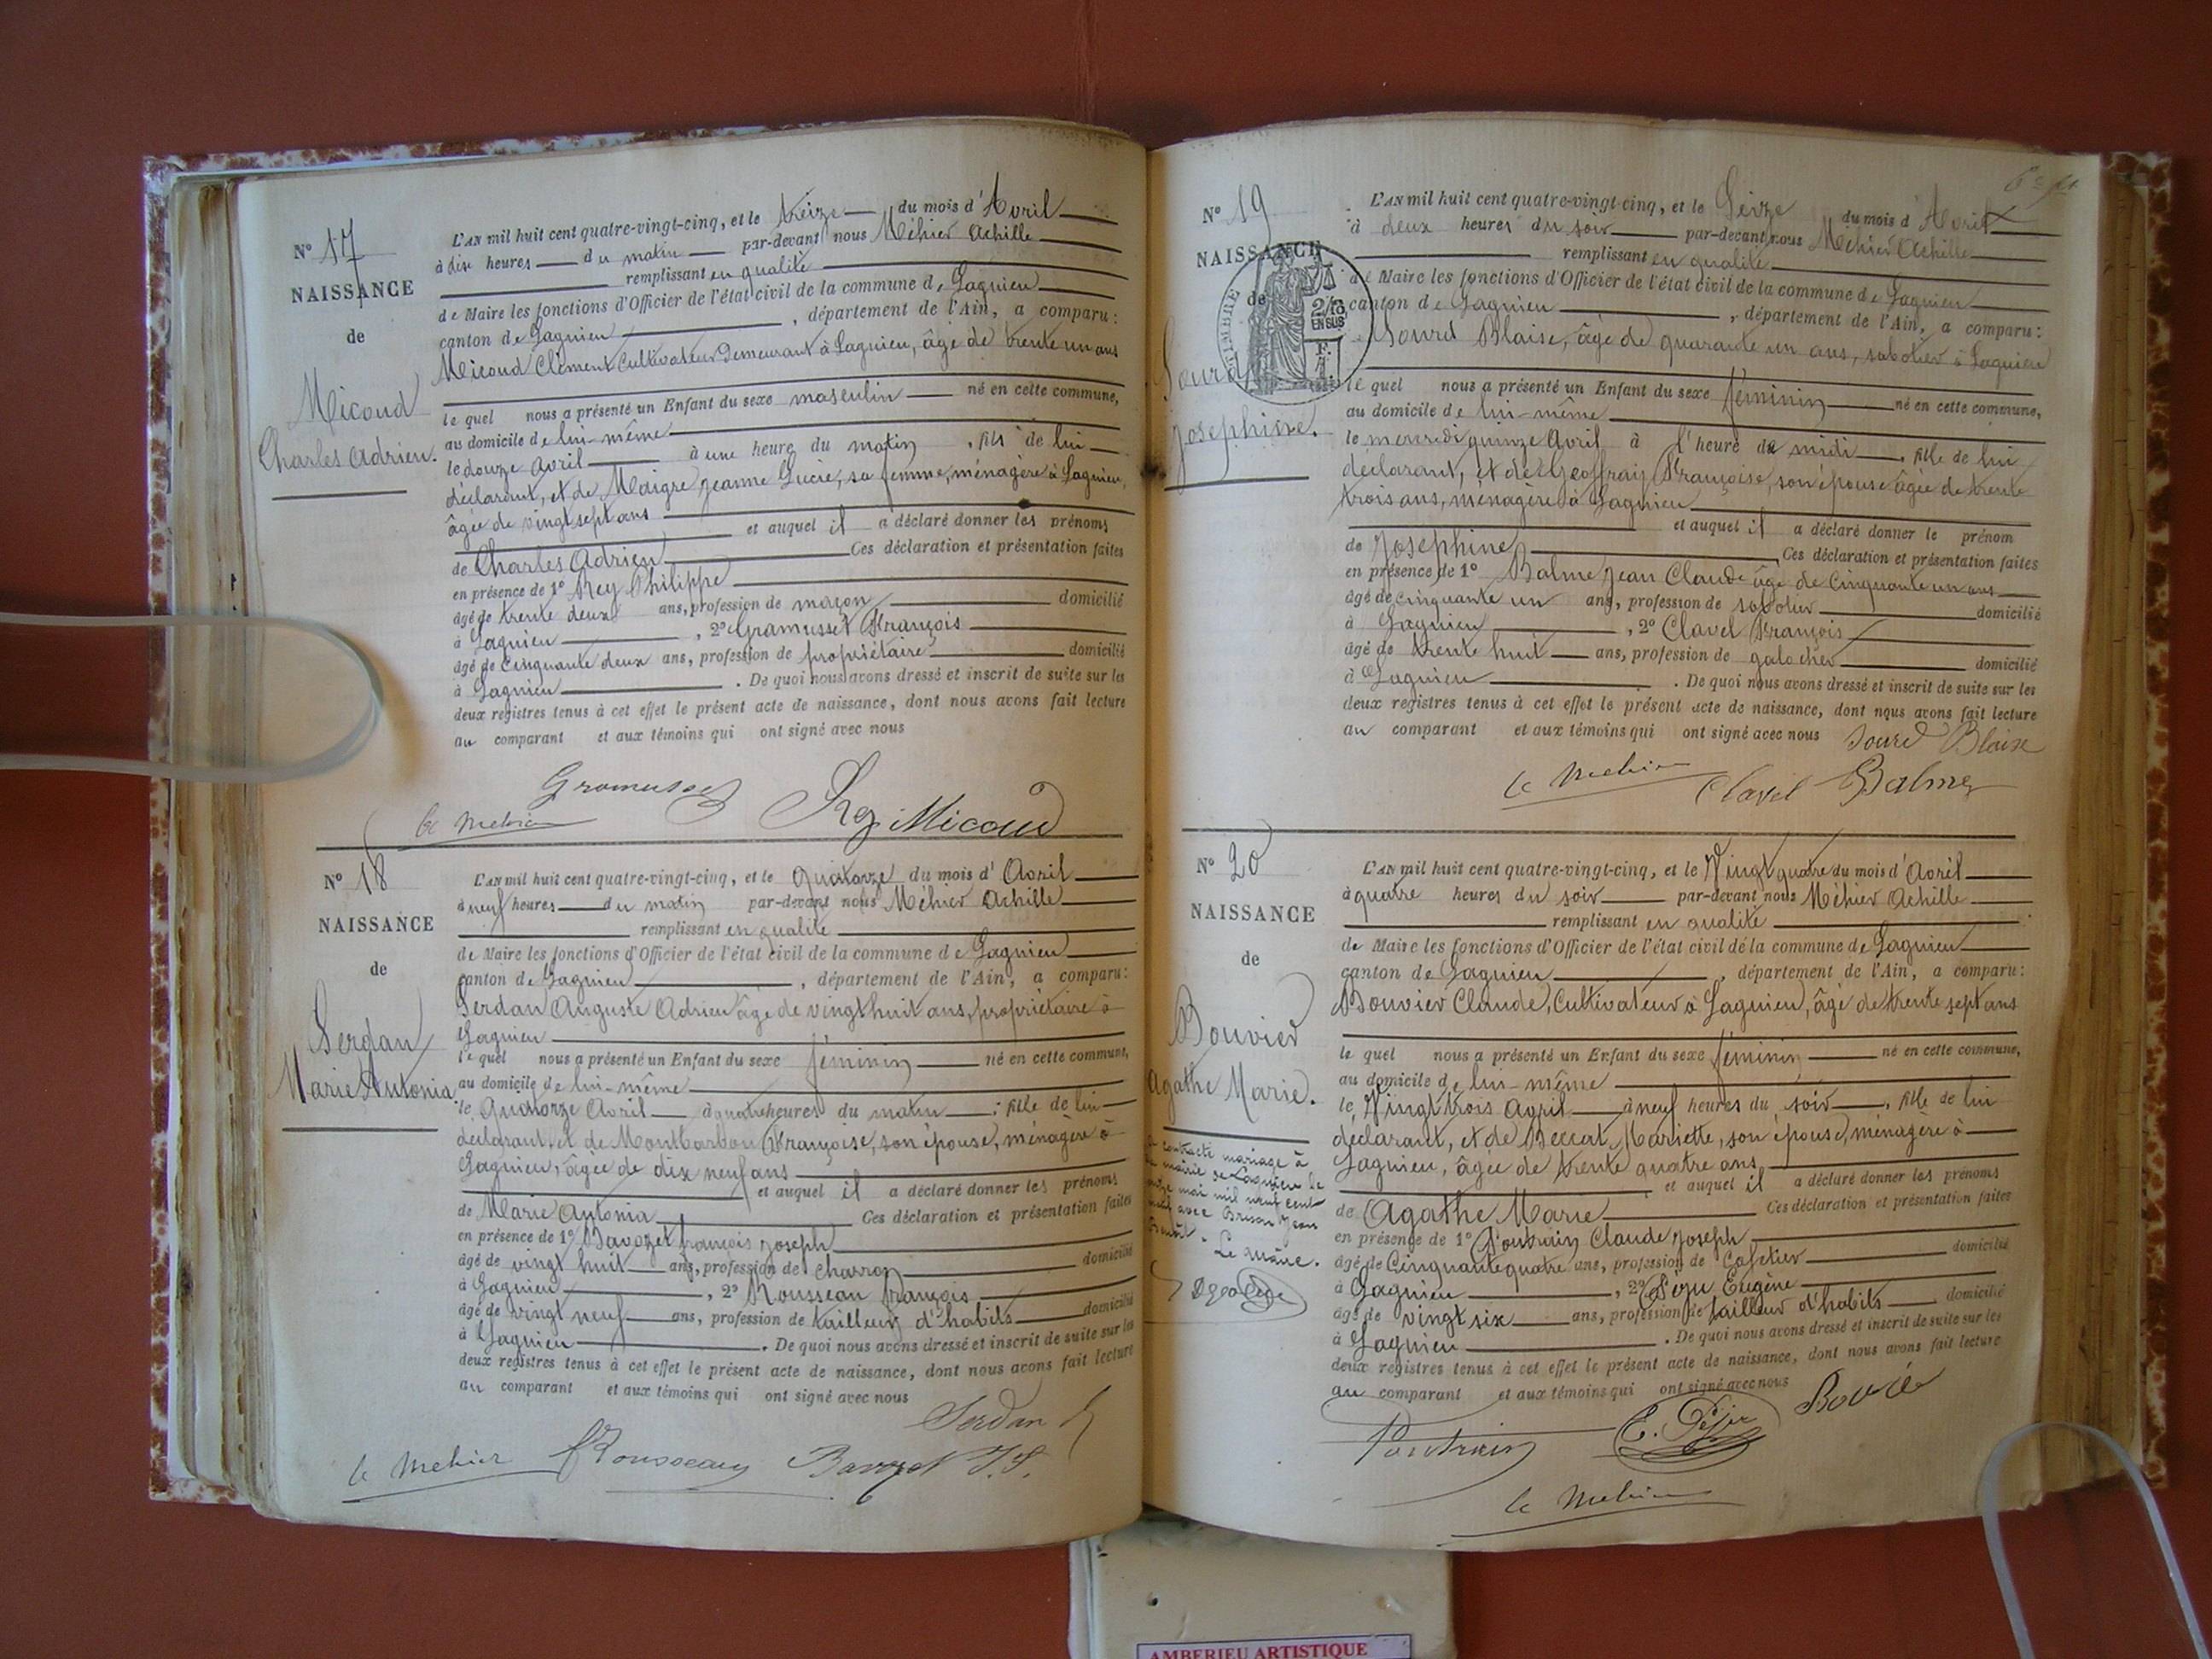 N° 17
NAISSANCE
de
Micoud
Charles Adrien.
L'AN mil huit cent quatre-vingt-cinq, et le treize du mois d'Avril
à dix heures du matin par-devant nous Méhier Achille
remplissant en qualité
de Maire les fonctions d'Officier de l'état civil de la commune de Lagnieu
canton de Lagnieu, département de l'Ain, a comparu:
Micoud Clément Cultivateur demeurant à Lagnieu, âgé de trente un ans
le quel nous a présenté un Enfant du sexe masculin né en cette commune,
au domicile de lui-même
le douze avril à une heure du matin, fils de lui
déclarant, et de Maigre Jeanne Lucie, sa femme, ménagère à Lagnieu,
âgée de vingt sept ans
et auquel il a déclaré donner les prénoms
de Charles Adrien Ces déclaration et présentation faites
en présence de 1° Rey Philippe
âgé de trente deux ans, profession de maçon domicilié
à Lagnieu, 2° Gramusset François
âgé de Cinquante deux ans, profession de propriétaire domicilié
à Lagnieu. De quoi nous avons dressé et inscrit de suite sur les
deux registres tenus à cet effet le présent acte de naissance, dont nous avons fait lecture
au comparant et aux témoins qui ont signé avec nous
Gramusset
le Mehier Rey Micoud
N° 18
NAISSANCE
de
Serdan
Marie Antonia.
L'AN mil huit cent quatre-vingt-cinq, et le Quatorze du mois d'Avril
à neuf heures du matin par-devant nous Méhier Achille
remplissant en qualité
de Maire les fonctions d'Officier de l'état civil de la commune de Lagnieu
canton de Lagnieu, département de l'Ain, a comparu:
Serdan Auguste Adrien âgé de vingt huit ans, propriétaire à
Lagnieu
le quel nous a présenté un Enfant du sexe féminin né en cette commune,
au domicile de lui-même
le Quatorze Avril à quatre heures du matin; fille de lui
déclarant, et de Montbarbon Françoise, son épouse, ménagère à
Lagnieu, âgée de dix neuf ans
et auquel il a déclaré donner les prénoms
de Marie Antonia Ces déclaration et présentation faites
en présence de 1° Bavozet François Joseph
âgé de vingt huit ans, profession de charron domicilié
à Lagnieu, 2° Rousseau François
âgé de vingt neuf ans, profession de tailleur d'habits domicilié
à Lagnieu. De quoi nous avons dressé et inscrit de suite sur les
deux registres tenus à cet effet le présent acte de naissance, dont nous avons fait lecture
au comparant et aux témoins qui ont signé avec nous
Serdan
le Mehier Rousseau Bavozet
N° 19
NAISSANCE
de
Sourd
Josephine.
TIMBRE
2/10
EN SUS
L'AN mil huit cent quatre-vingt-cinq, et le Seize du mois d'Avril
à deux heures du soir par-devant nous Méhier Achille
remplissant en qualité
de Maire les fonctions d'Officier de l'état civil de la commune de Lagnieu
canton de Lagnieu, département de l'Ain, a comparu:
Sourd Blaise, âgé de quarante un ans, sabotier à Lagnieu
le quel nous a présenté un Enfant du sexe féminin né en cette commune,
au domicile de lui-même
le mercredi quinze Avril à l'heure de midi, fille de lui
déclarant, et de Geoffray Françoise, son épouse âgée de trente
trois ans, ménagère à Lagnieu
et auquel il a déclaré donner le prénom
de Josephine Ces déclaration et présentation faites
en présence de 1° Balme Jean Claude âgé de Cinquante un ans
âgé de cinquante un ans, profession de sabotier domicilié
à Lagnieu, 2° Clavel François
âgé de trente huit ans, profession de galocher domicilié
à Lagnieu. De quoi nous avons dressé et inscrit de suite sur les
deux registres tenus à cet effet le présent acte de naissance, dont nous avons fait lecture
au comparant et aux témoins qui ont signé avec nous Sourd Blaise
le Mehier Clavel Balme
N° 20
NAISSANCE
de
Bouvier
Agathe Marie.
contracté mariage à
mairie de Lagnieu le
mai mil neuf cent
avec Brison Jean
Le maire.
L'AN mil huit cent quatre-vingt-cinq, et le Vingt quatre du mois d'Avril
à quatre heures du soir par-devant nous Méhier Achille
remplissant en qualité
de Maire les fonctions d'Officier de l'état civil de la commune de Lagnieu
canton de Lagnieu, département de l'Ain, a comparu:
Bouvier Claude, Cultivateur à Lagnieu, âgé de trente sept ans
le quel nous a présenté un Enfant du sexe féminin né en cette commune,
au domicile de lui-même
le Vingt trois Avril à neuf heures du soir, fille de lui
déclarant, et de Beccat Mariette, son épouse, ménagère à
Lagnieu, âgée de trente quatre ans
et auquel il a déclaré donner les prénoms
de Agathe Marie Ces déclaration et présentation faites
en présence de 1° Poutrain Claude Joseph
âgé de Cinquante quatre ans, profession de Cafetier domicilié
à Lagnieu, 2° Péju Eugène
âgé de vingt six ans, profession de tailleur d'habits domicilié
à Lagnieu. De quoi nous avons dressé et inscrit de suite sur les
deux registres tenus à cet effet le présent acte de naissance, dont nous avons fait lecture
au comparant et aux témoins qui ont signé avec nous
Poutrain E. Péju
le Mehier
AMBERIEU ARTISTIQUE